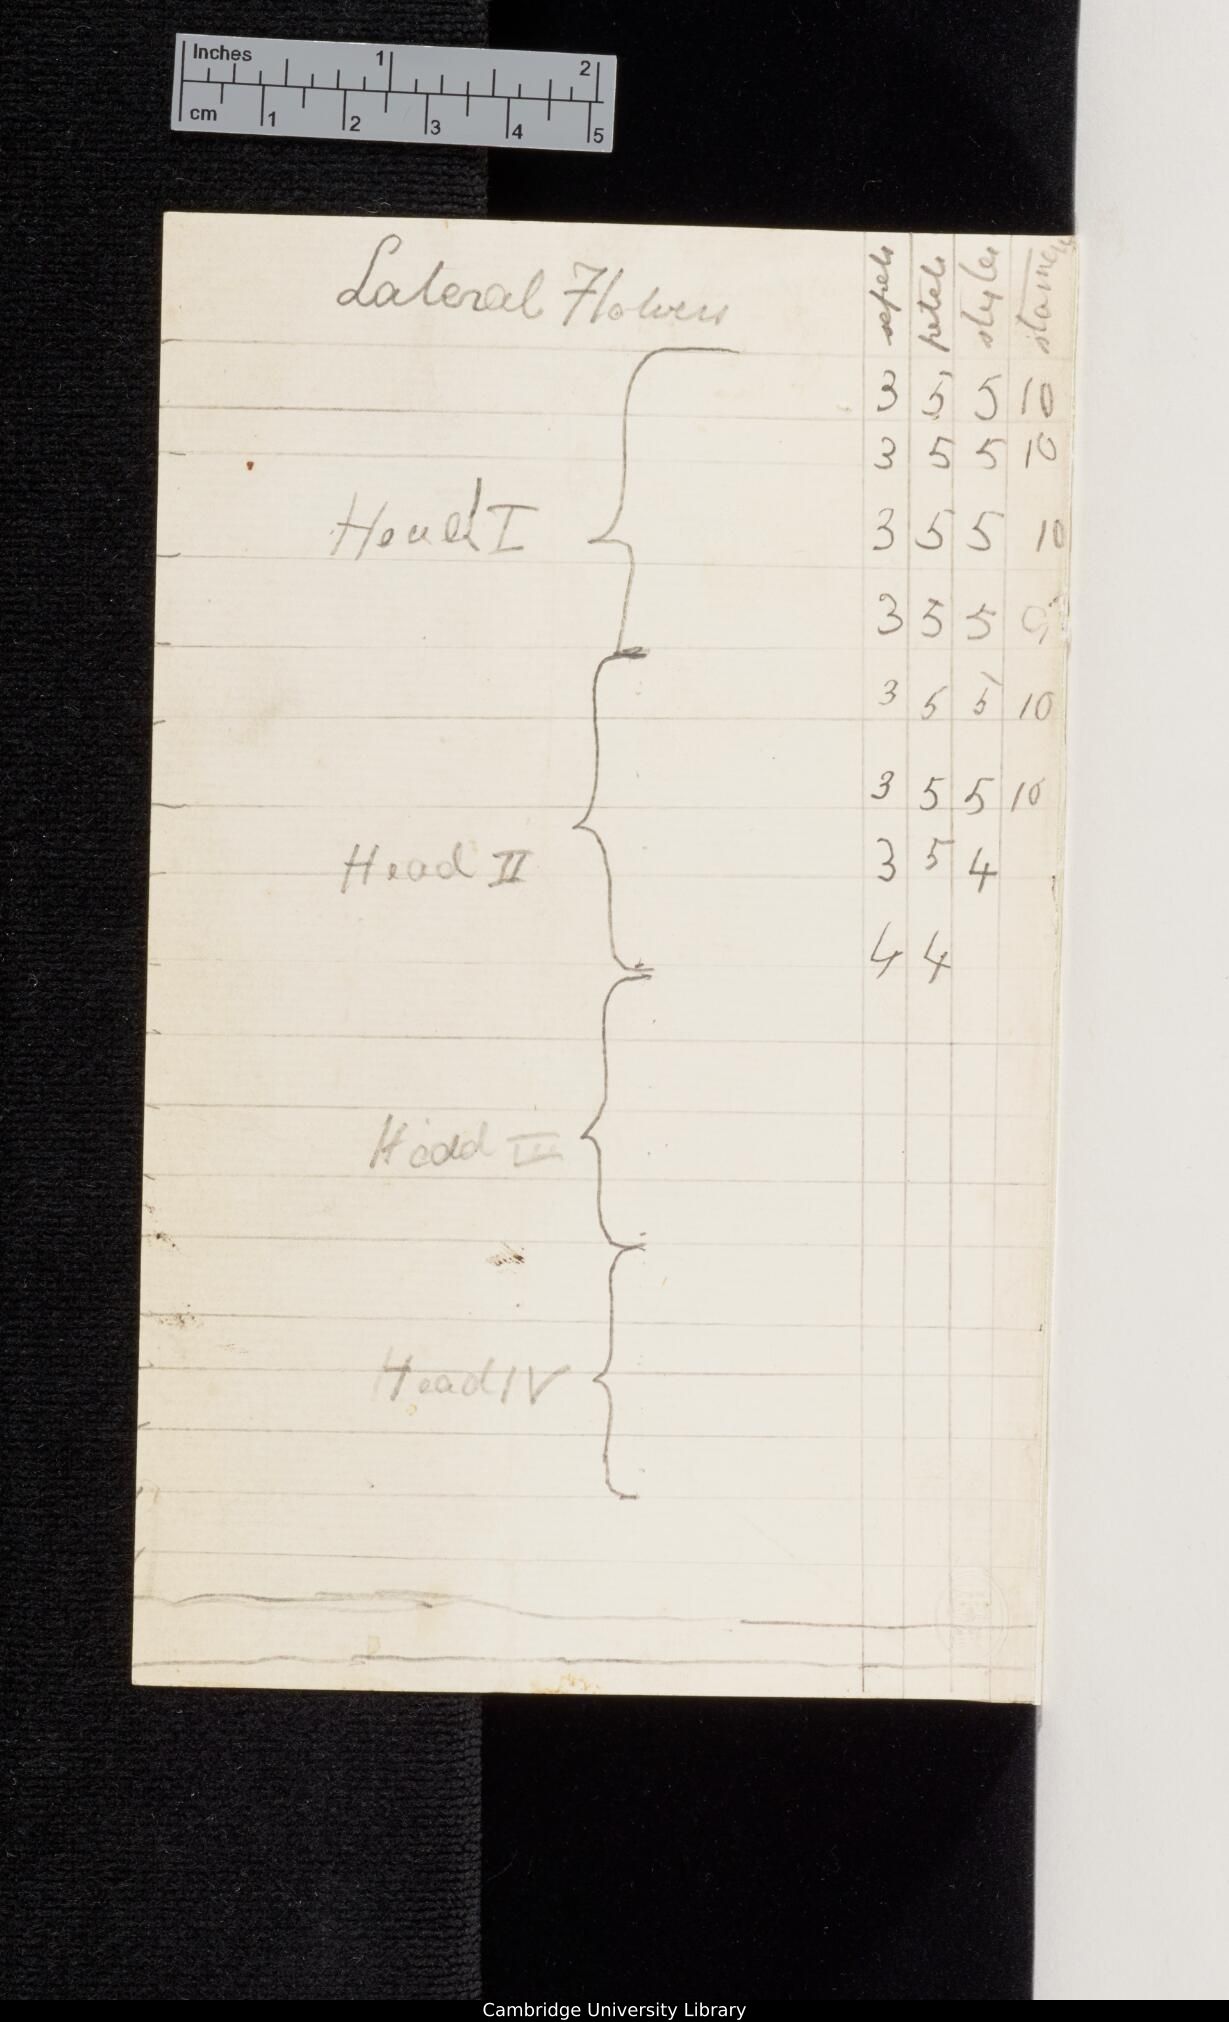 Inches 1 2
cm 1 2 3 4 5
Lateral Flowers sepals petals styles stamens
3 5 5 10
3 5 5 10
Head I 3 5 5 10
3 5 5 9
3 5 5 10
3 5 5 10
Head II 3 5 4
4 4
Head III
Head IV
Cambridge University Library